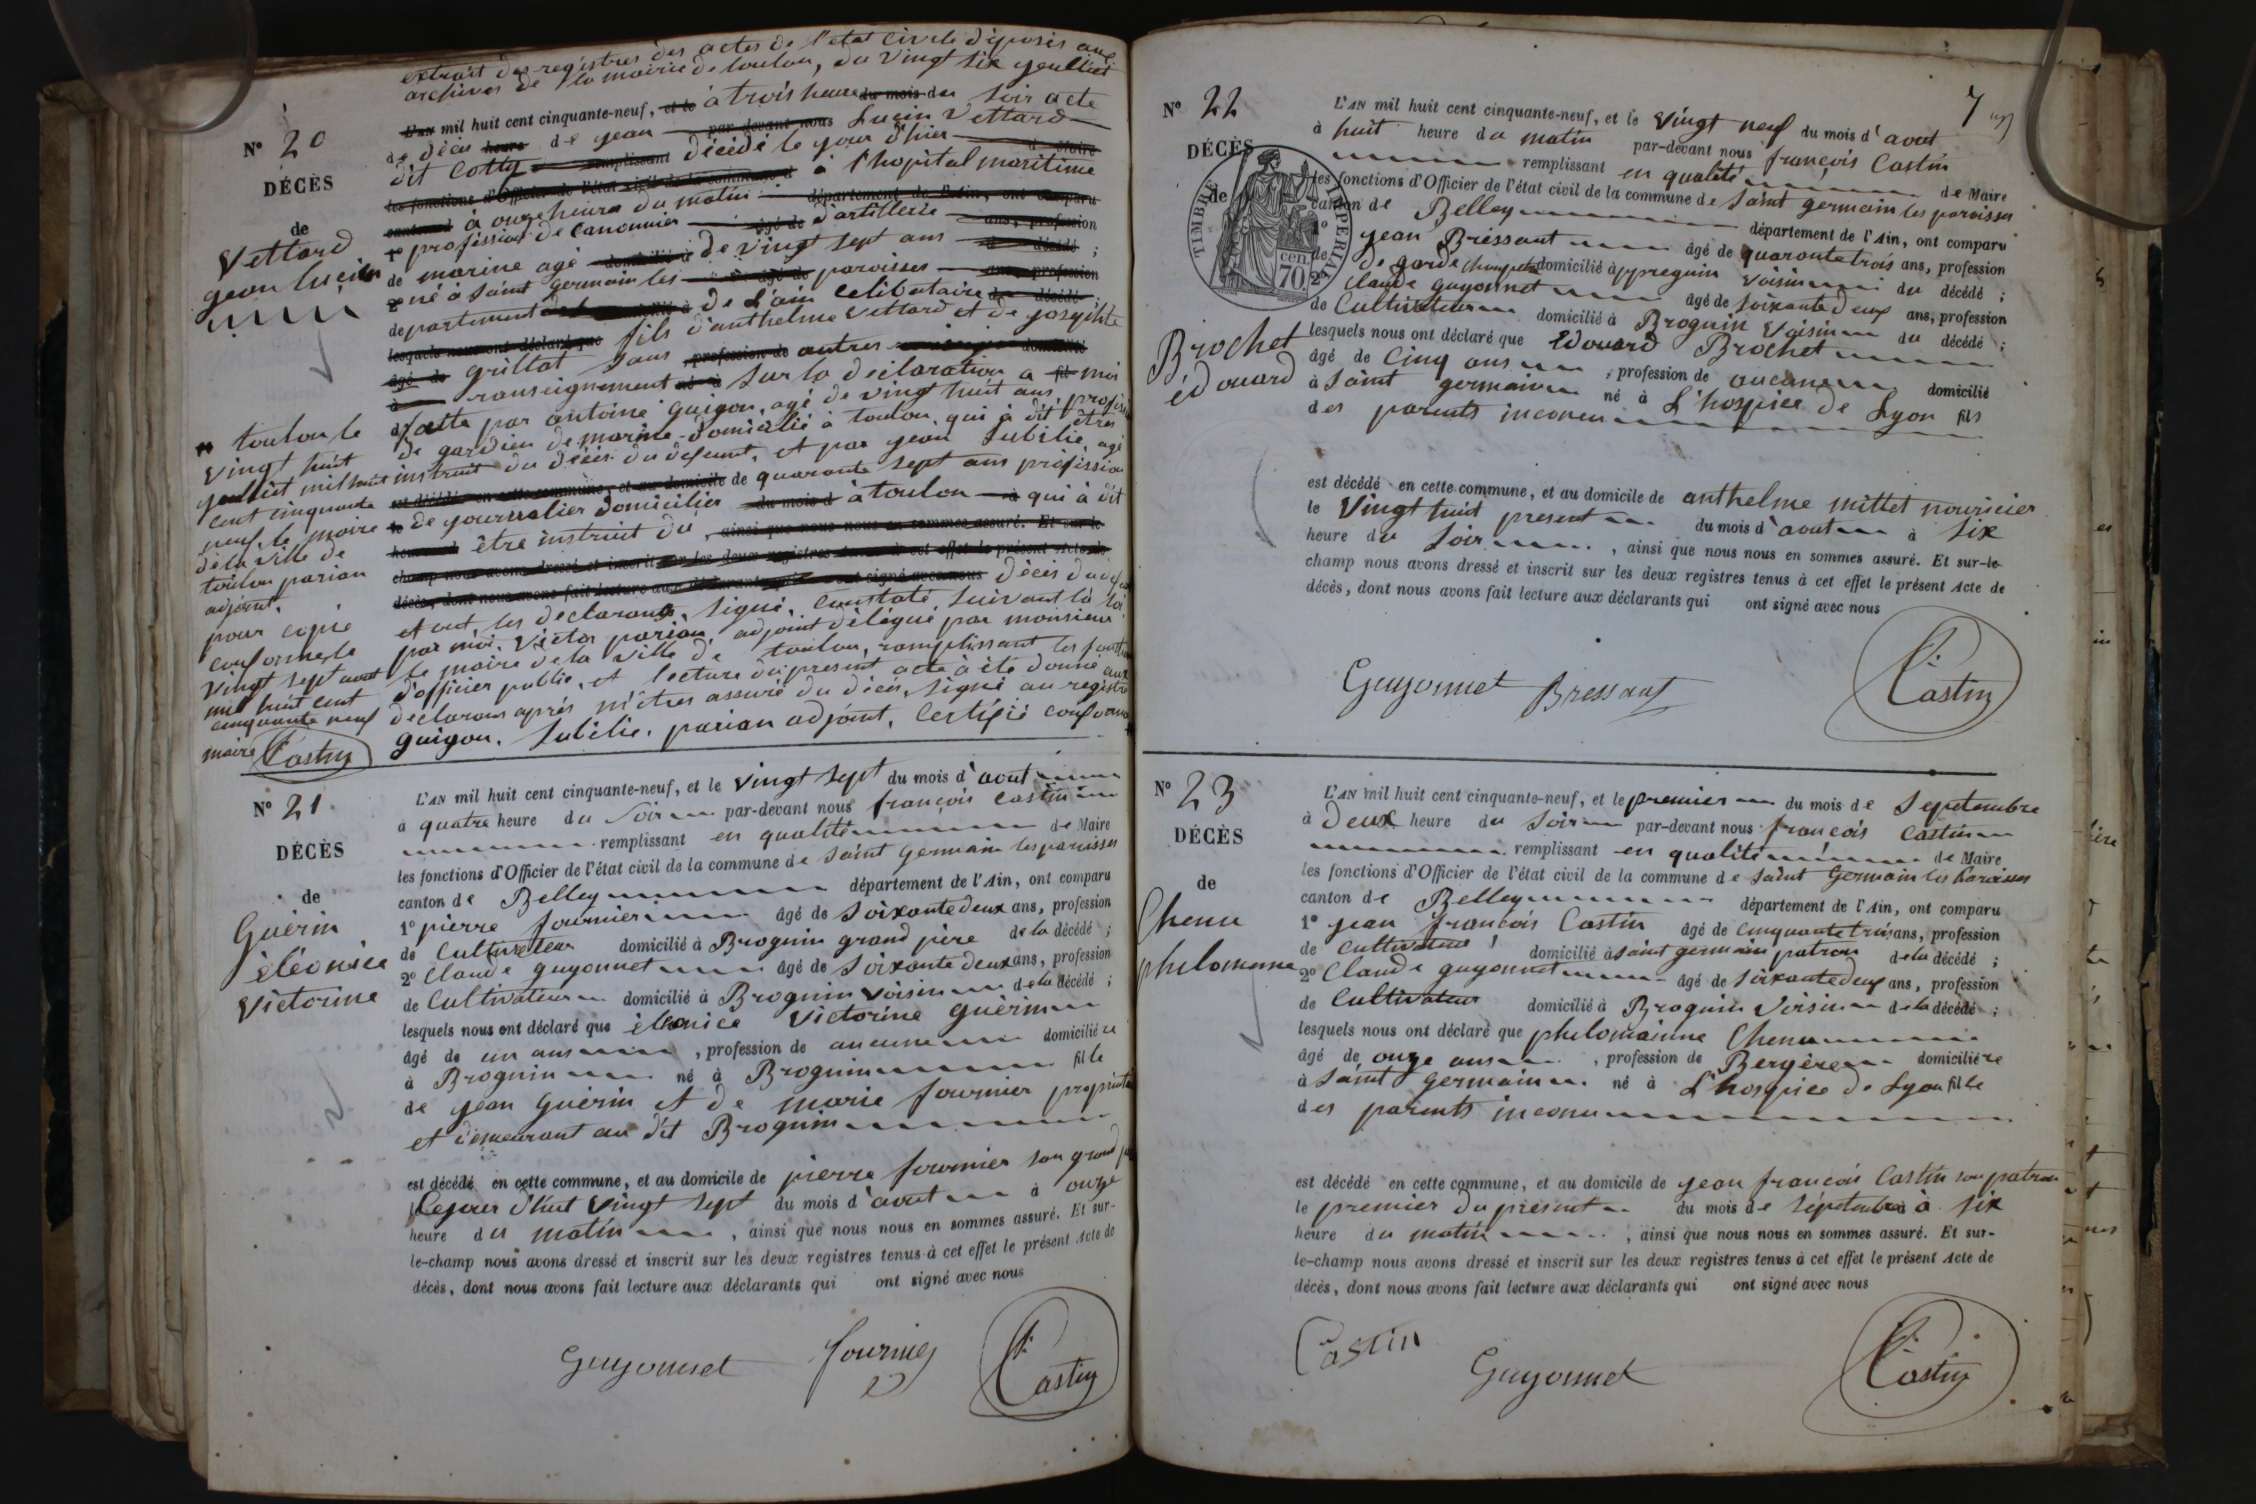 extrait des registres des actes de l'état civile déposés aux
archives de la mairie de toulon, du vingt six jeuillet
L'an mil huit cent cinquante-neuf, et le à trois heure du mois du soir acte
de décès heure de jean par-devant nous Lucin Vettard
dit Cotty remplissant décédé le jour d'hier
à l'hopital maritime
à onze heure du matin
1º profession de canonnier d'artillerie ans, profession
de marine agé domicilié à de vingt sept ans décédé ;
2º né à saint germain les paroisses
departement de l'ain celibataire
lesquels nous ont déclaré que fils d'anthelme Vettard et de josephte
âgé de grillat sans profession de autres domicilié
à ranseignement né à sur la déclaration a fil moi
faitte par antoine guigou, agé de vingt huit ans, profession
de gardien de marine domicilié à toulon, qui à dit être
instruit du décès du defeunt, et par jean Subilie, agé
est décédé en cette commune, et au domicile de quarante sept ans profession
le de journalier domicilier du mois d à toulon à qui à dit
heure d être instruit du , ainsi que nous nous en sommes assuré. Et sur-le
champ nous avons dressé et inscrit sur les deux registres tenus à cet effet le présent Acte de
décès, dont nous avons fait lecture aux déclarants qui ont signé avec nous décès du
et ont, les declarants, signé, constaté, suivant la loi
par moi, Victor parian, adjoint délégué par monsieur
le maire de la ville de toulon, ramplissant les
d'officier public, et lecture du present acte à été donné aux
declarans après m'être assuré du décès, signé au registre
guigou, Subilie, parian adjoint, Certifié conforme
Nº 20
DÉCÈS
de
Vettard
jean lucin
toulon le
vingt huit
jeullict mil huit
cent cinquante
neuf, le maire
de la ville de
toulon parian
adjoint,
pour copie
conforme, le
vingt sept aout
mil huit cent
cinquante neuf
maire Castin
Nº 21
DÉCÈS
de
Guérin
éléonice
Victorine
L'AN mil huit cent cinquante-neuf, et le vingt sept du mois d'aout
à quatre heure du soir par-devant nous françois Castin
remplissant en qualité de Maire
les fonctions d'Officier de l'état civil de la commune de saint Germain les paroisses
canton de Belley département de l'Ain, ont comparu
1º pierre fournier âgé de soixante deux ans, profession
de Cultivateur domicilié à Brognin grand père de la décédé ;
2º Claude guyonnet âgé de soixante deux ans, profession
de Cultivateur domicilié à Brognin voisin de la décédé ;
lesquels nous ont déclaré que éléonice Victorine guérin
âgé de un ans , profession de aucune domiciliée
à Brognin né à Brognin fille
de jean Guérin et de marie fournier
et demeurant au dit Brognin
est décédé en cette commune, et au domicile de pierre fournier son grand
le jour d'hui vingt sept du mois d'aout à onze
heure du matin , ainsi que nous nous en sommes assuré. Et sur-
le-champ nous avons dressé et inscrit sur les deux registres tenus à cet effet le présent Acte de
décès, dont nous avons fait lecture aux déclarants qui ont signé avec nous
Guyonnet fournier Castin
7
Nº 22
DÉCÈS
de
Brochet
édouard
TIMBRE IMPÉRIAL
70 cen.
L'AN mil huit cent cinquante-neuf, et le vingt neuf du mois d'aout
à huit heure du matin par-devant nous françois Castin
remplissant en qualité de Maire
les fonctions d'Officier de l'état civil de la commune de saint germain les paroisses
canton de Belley département de l'Ain, ont comparu
1º jean Bressant âgé de quarante trois ans, profession
de garde champetre domicilié à appregnin voisin du décédé ;
2º Claude guyonnet âgé de soixante deux ans, profession
de Cultivateur domicilié à Brognin Voisin du décédé ;
lesquels nous ont déclaré que édouard Brochet
âgé de cinq ans , profession de aucune domicilié
à saint germain né à L'hospice de Lyon fils
des parents inconnu
est décédé en cette commune, et au domicile de anthelme mittet nouricier
le vingt huit present du mois d'aout à six
heure du soir , ainsi que nous nous en sommes assuré. Et sur-le-
champ nous avons dressé et inscrit sur les deux registres tenus à cet effet le présent Acte de
décès, dont nous avons fait lecture aux déclarants qui ont signé avec nous
Guyonnet Bressant Castin
Nº 23
DÉCÈS
de
Chenu
philomenne
L'AN mil huit cent cinquante-neuf, et le premier du mois de septembre
à deux heure du soir par-devant nous françois Castin
remplissant en qualité de Maire
les fonctions d'Officier de l'état civil de la commune de saint Germain les Paroisses
canton de Belley département de l'Ain, ont comparu
1º jean françois Castin âgé de cinquante trois ans, profession
de cultivateur domicilié à saint germain patron de la décédé ;
2º Claude guyonnet âgé de soixante deux ans, profession
de Cultivateur domicilié à Brognin Voisin de la décédé ;
lesquels nous ont déclaré que philomainne Chenu
âgé de onze ans , profession de Bergère domiciliére
à saint Germain né à L'hospice de Lyon fille
des parents inconu
est décédé en cette commune, et au domicile de jean françois Castin son patron
le premier du présent du mois de séptembre à six
heure du matin , ainsi que nous nous en sommes assuré. Et sur-
le-champ nous avons dressé et inscrit sur les deux registres tenus à cet effet le présent Acte de
décès, dont nous avons fait lecture aux déclarants qui ont signé avec nous
Castin Guyonnet Castin